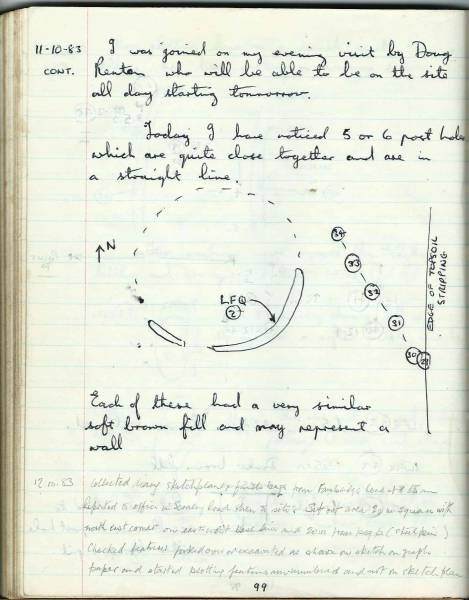 11-10-83
CONT.
I was joined on my evening visit by Doug
Renton who will be able to be on the site
all day starting tommorrow.
Today I have noticed 5 or 6 post holes
which are quite close together and are in
a straight line.
↑N
LFQ
2
34
33
32
31
30
29
EDGE OF TOPSOIL
STRIPPING
Each of these had a very similar
soft brown fill and may represent a
wall
12.10.83
Collected
sketch plan
finds bags from
at 8.15 am
Reported to office in
Road then to site. Set out area 20m square with
north east corner on east
base line and 20m from peg
Checked features
or excavated as shown on sketch on graph
paper and started plotting features
and not on sketch plan
99